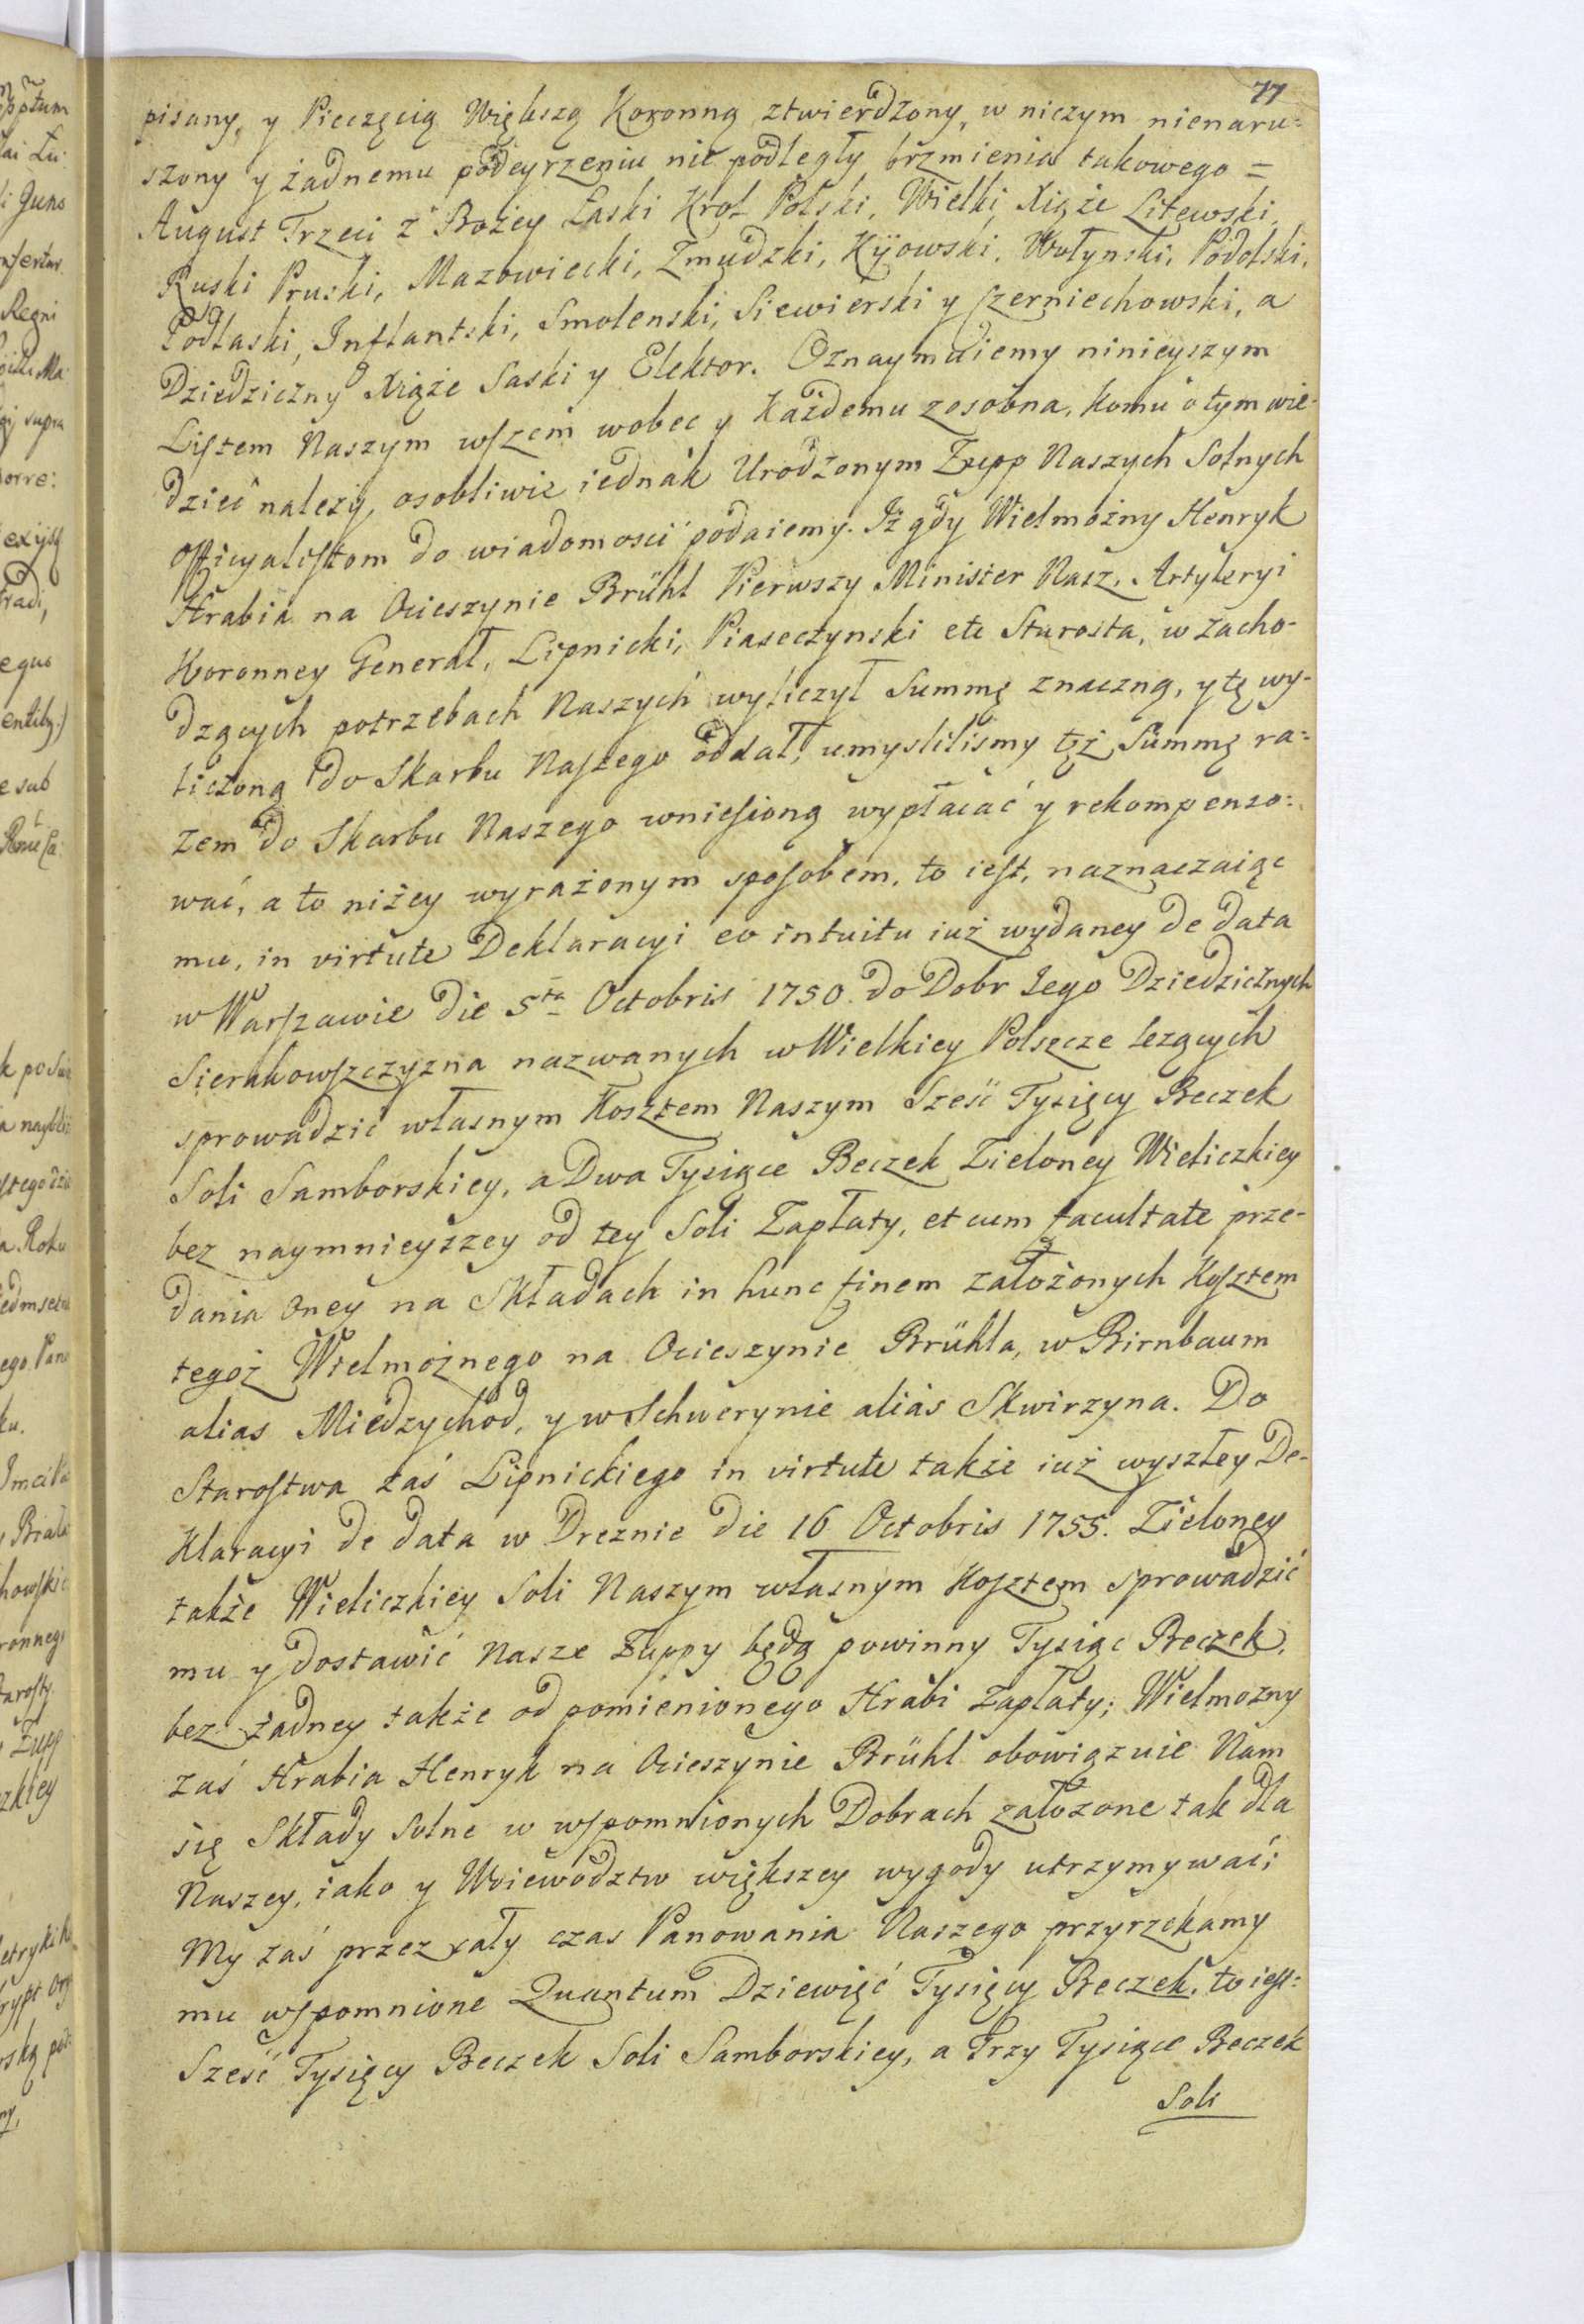 77
pisany, y Pieczęcią Większą Koronną ztwierdzony, w niczym nienaru=
szony y żadnemu podeyrzeniu nie podległy brzmienia takowego =
August Trzeci z Bożey Łaski Krol Polski, Wielki Xiąże Litewski,
Ruski Pruski, Mazowiecki, Zmudzki, Kijowski, Wołynski, Podolski,
Podlaski, Inflantski, Smolenski, Siewierski y Czerniechowski, a
Dziedziczny Xiąże Saski y Elektor. Oznaymuiemy ninieyszym
Listem Naszym wszem wobec y każdemu zosobna, komu o tym wie-
dzieć należy, osobliwie iednak Urodzonym Zupp Naszych Solnych
Officyalistom do wiadomosci podaiemy. Iż gdy Wielmożny Henryk
Hrabia na Ocieszynie Brühl Pierwszy Minister Nasz, Artyleryi
Koronney Generał, Lipnicki, Piaseczynski etc Starosta, w zacho-
dzących potrzebach Naszych wyliczył Summę znaczną, y tę wy-
liczoną do Skarbu Naszego oddał, umyslilismy tęż Summę ra=
zem do Skarbu Naszego wniesioną wypłacać y rekompenso=
wać, a to niżey wyrażonym sposobem, to iest, naznaczaiąc
mu, in virtute Deklaracyi eo intuitu iuż wydaney de data
w Warszawie die 5ta Octobris 1750. do Dobr Jego Dziedzicznych
Sierakowszczyzna nazwanych w Wielkiey Polszcze leżących
sprowadzić własnym Kosztem Naszym Sześć Tysięcy Beczek
Soli Samborskiey, a Dwa Tysiące Beczek Zieloney Wieliczkiey
bez naymnieyszey od tey Soli Zapłaty, et cum facultate prze-
dania oney na Składach in hunc finem założonych Kosztem
tegoż Wielmożnego na Ocieszynie Brühla, w Birnbaum
alias Miedzychod, y w Schwerynie alias Skwirzyna. Do
Starostwa zaś Lipnickiego in virtute także iuż wyszłey De-
klaracyi de data w Dreznie die 16 Octobris 1755. Zieloney
także Wieliczkiey Soli Naszym własnym Kosztem sprowadzić
mu y dostawić Nasze Zuppy będą powinny Tysiąc Beczek,
bez żadney także od pomienionego Hrabi Zapłaty; Wielmozny
zaś Hrabia Henryk na Ocieszynie Brühl obowiązuie Nam
się Składy Solne w wspomnionych Dobrach założone tak dla
Naszey, iako y Woiewodztw większey wygody utrzymywać;
My zaś przez cały czas Panowania Naszego przyrzekamy
mu wspomnione Quantum Dziewięć Tysięcy Beczek, to iest:
Sześć Tysięcy Beczek Soli Samborskiey, a Trzy Tysiące Beczek
Soli